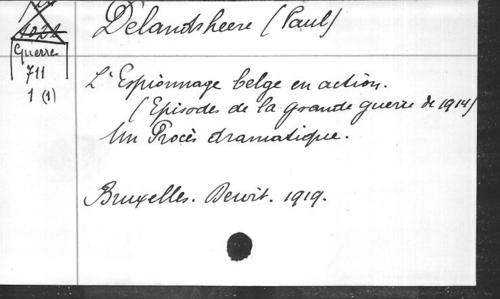 Delandsheere (Paul)
Guerre
711
1 (1)
L'Espionnage belge en action.
(Episodes de la grande guerre de 1914)
Un Procès dramatique.
Bruxelles. Benoit. 1919.